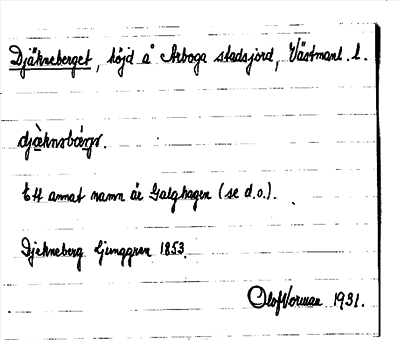 Djäkneberget, höjd å Arboga stadsjord, Västmanl. l.
djä̀knsbærgs.
Ett annat namn är Galghagen (se d.o.).
Djekneberg Ljunggren 1853.
Olof Vorman 1931.